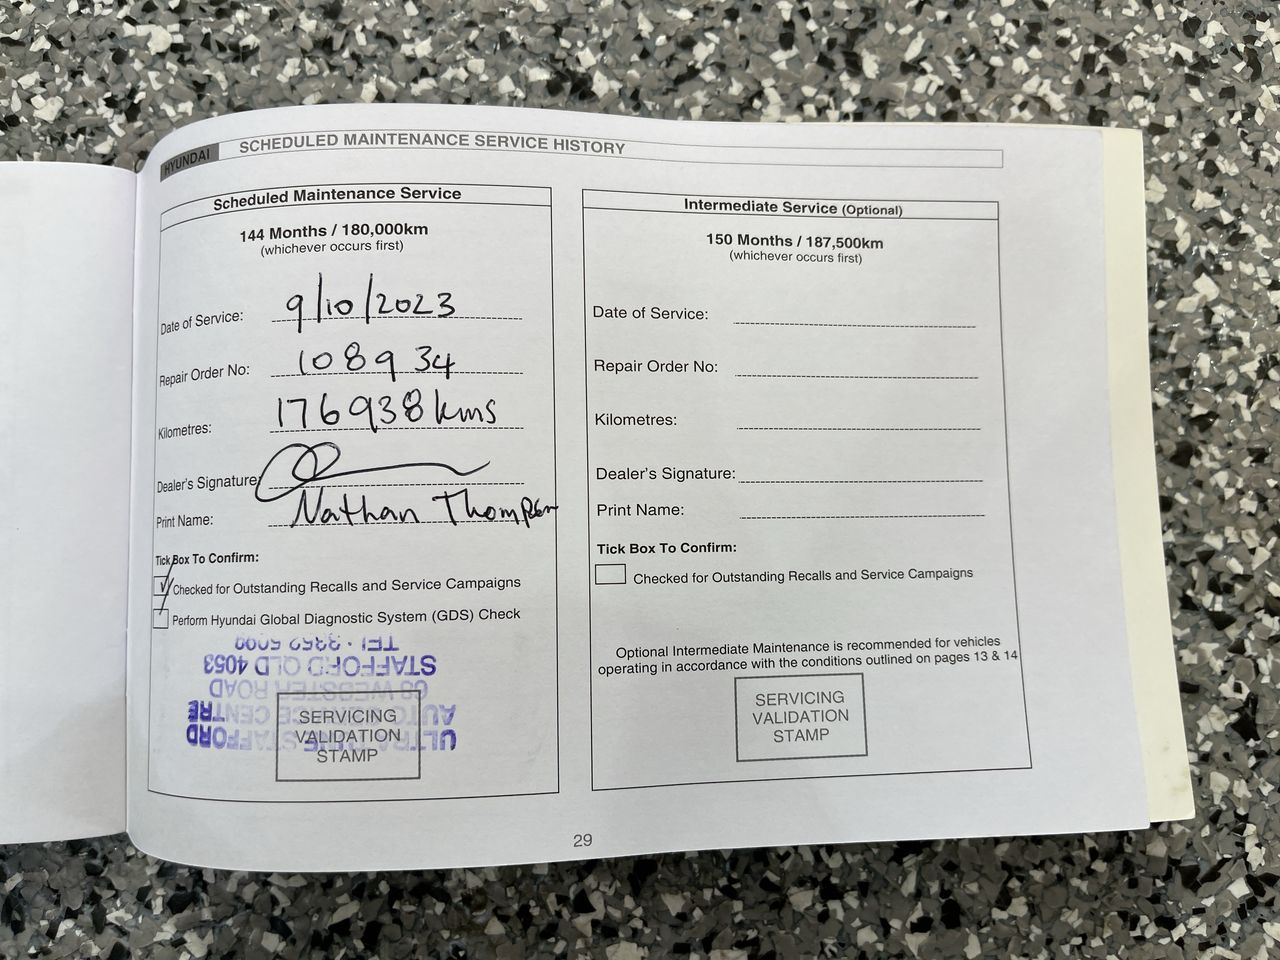 HYUNDAI
SCHEDULED MAINTENANCE SERVICE HISTORY
Scheduled Maintenance Service
144 Months / 180,000km
(whichever occurs first)
Date of Service: 9/10/2023
Repair Order No: 108934
Kilometres: 176938 kms
Dealer's Signature:
Print Name: Nathan Thompson
Tick Box To Confirm:
Checked for Outstanding Recalls and Service Campaigns
Perform Hyundai Global Diagnostic System (GDS) Check
ULTRA TUNE STAFFORD
AUTO SERVICE CENTRE
WEBSTER ROAD
STAFFORD QLD 4053
TEL:
SERVICING
VALIDATION
STAMP
Intermediate Service (Optional)
150 Months / 187,500km
(whichever occurs first)
Date of Service:
Repair Order No:
Kilometres:
Dealer's Signature:
Print Name:
Tick Box To Confirm:
Checked for Outstanding Recalls and Service Campaigns
Optional Intermediate Maintenance is recommended for vehicles
operating in accordance with the conditions outlined on pages 13 & 14
SERVICING
VALIDATION
STAMP
29